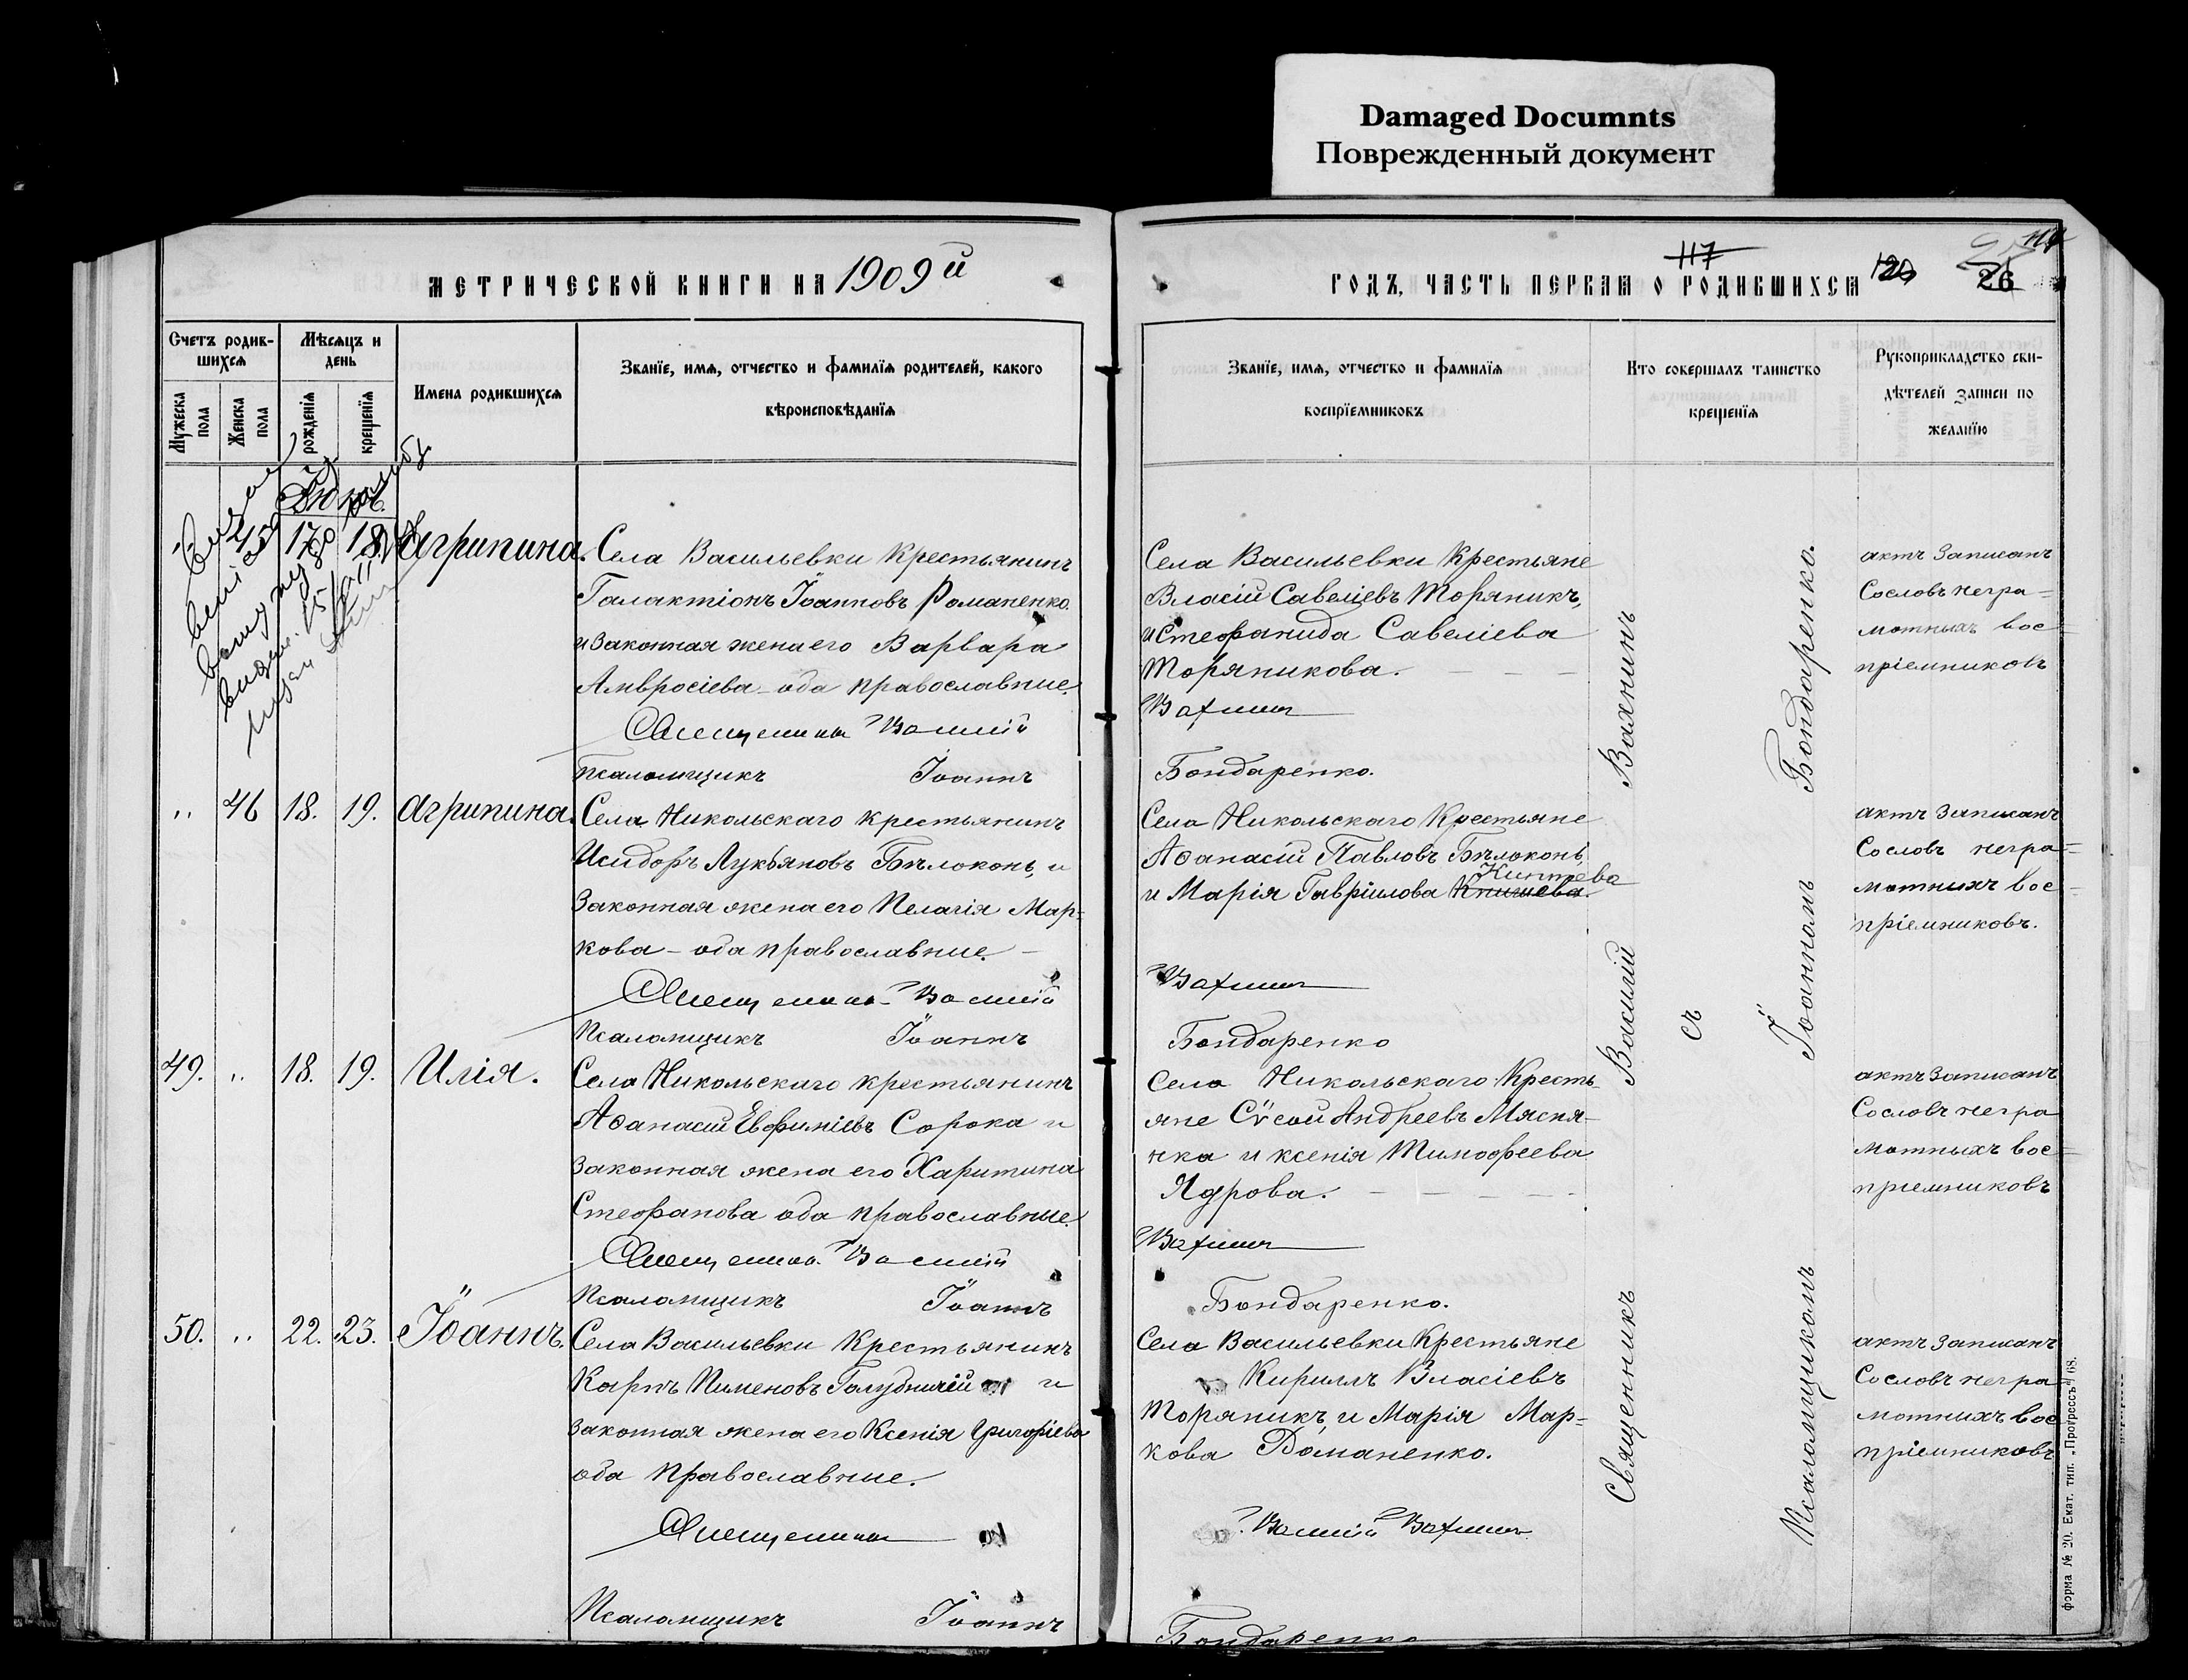 Damaged Documnts
Поврежденный документ
МЕТРИЧЕСКОЙ КНИГИ НА 1909й
Счетъ родив-
шихся
Мѣсяцъ и
день
Мужеска
пола
Женска
пола
рожденія
крещенія
Имена родившихся
Званіе, имя, отчество и фамилія родителей, какого
вѣроисповѣданія
Іюль
45 17. 18. Агрипина.
Села Васильевки крестьянинъ
Галактіонъ Іоанновъ Романенко
и законная жена его Варвара
Амвросіева - оба православные.
Священникъ Василій
Псаломщикъ Іоаннъ
" 46 18. 19. Агрипина.
Села Никольскаго крестьянинъ
Исидоръ Лукьяновъ Бѣлоконь, и
законная жена его Пелагія Мар=
кова - оба православные. -
Священникъ Василій
Псаломщикъ Іоаннъ
49. " 18. 19. Илія.
Села Никольскаго крестьянинъ
Аѳанасій Евфиміевъ Сорока и
законная жена его Харитина
Стефанова оба православные.
Священникъ Василій
Псаломщикъ Іоаннъ
50. " 22. 23. Іоаннъ.
Села Васильевки Крестьянинъ
Карпъ Пименовъ Голубничій и
законная жена его Ксенія Григоріева
оба православные.
Священникъ
Псаломщикъ Іоаннъ
117
ГОДЪ, ЧАСТЬ ПЕРВАЯ О РОДИВШИХСЯ
120
26
Званіе, имя, отчество и фамилія
воспріемниковъ
Кто совершалъ таинство
крещенія
Рукоприкладство сви-
дѣтелей записи по
желанію
Села Васильевки Крестьяне
Власій Савеліевъ Торяникъ,
и Стефанида Савеліева
Торяникова. - - -
Вахнинъ
Бондаренко.
Села Никольскаго Крестьяне
Аѳанасій Павловъ Бѣлоконь,
и Марія Гавріилова
Вахнинъ
Бондаренко
Села Никольскаго Кресть-
яне Сѵсой Андреевъ Мясня-
нка и Ксенія Тимофеева
Ядрова. - - - - -
Вахнинъ
Бондаренко.
Села Васильевки Крестьяне
Кириллъ Власіевъ
Торяникъ, и Марія Мар=
кова Романенко.
Василій Вахнинъ
Бондаренко
Священникъ Василій Вахнинъ
съ
Псаломщикомъ Іоанномъ Бондаренко.
актъ записанъ
Со словъ негра=
мотныхъ вос=
пріемниковъ
актъ записанъ
Со словъ негра=
мотныхъ вос=
пріемниковъ.
актъ записанъ
Со словъ негра
мотныхъ вос=
пріемниковъ
актъ записанъ
Со словъ негра
мотныхъ вос
пріемниковъ
форма № 20. Екат. тип. „Прогрессъ" 68.